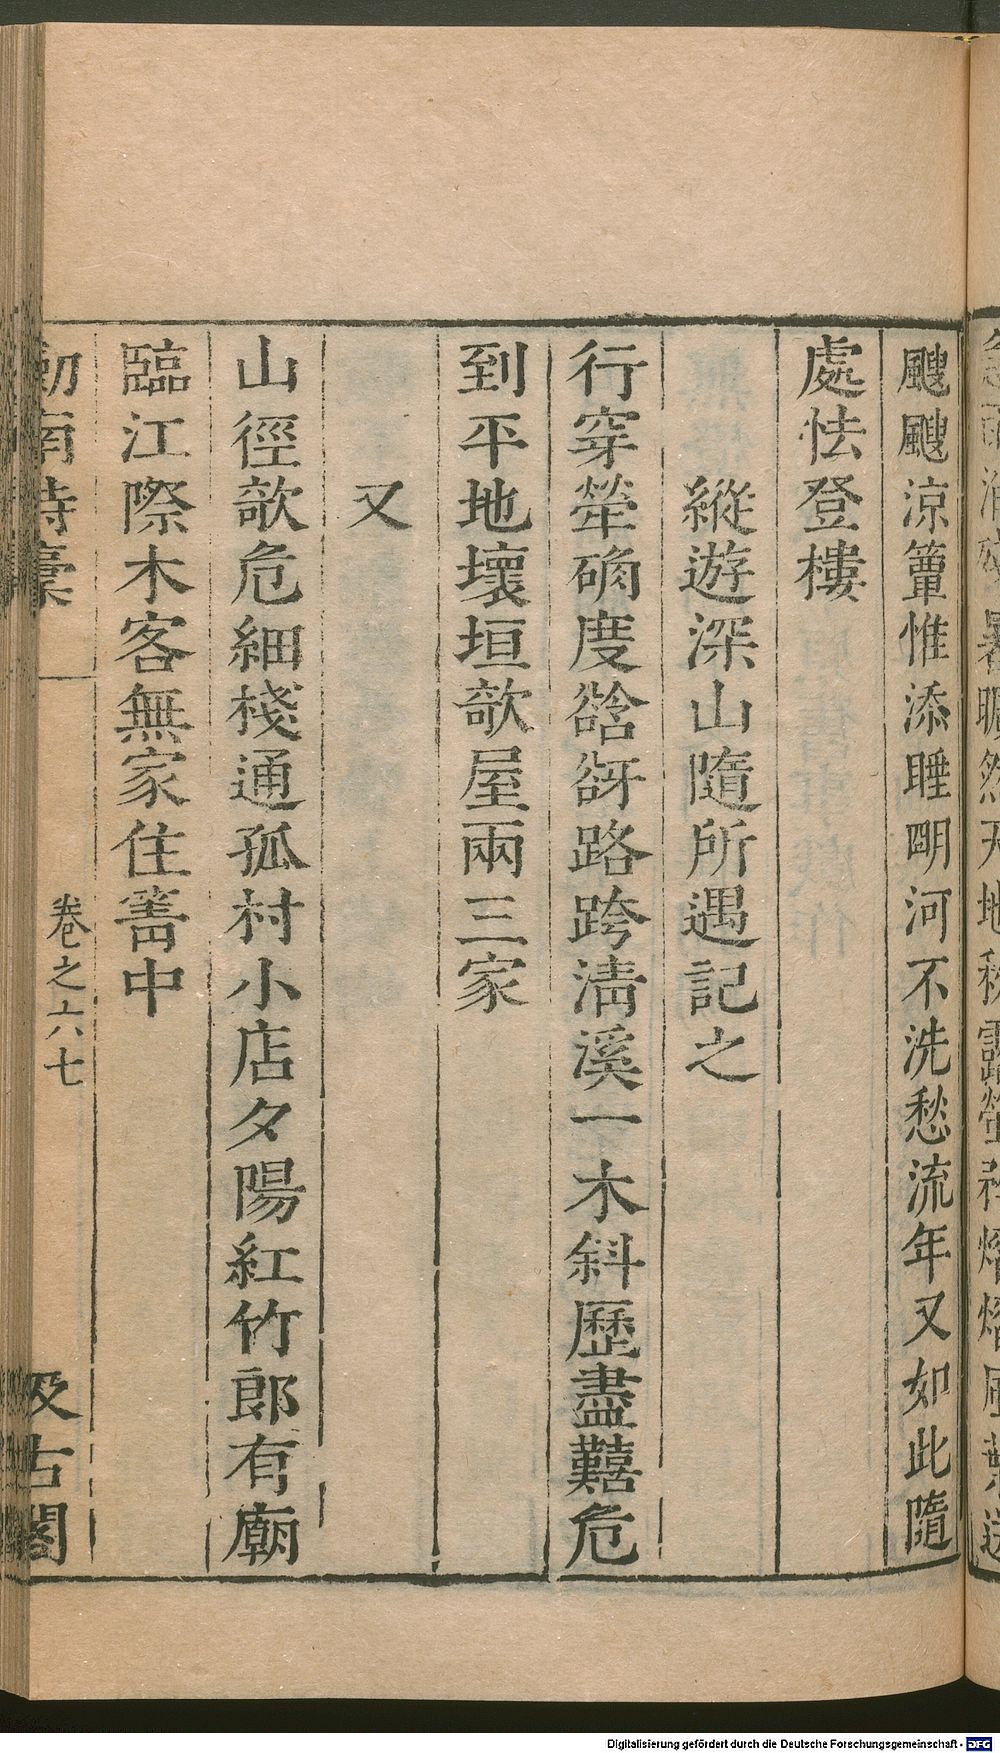 颼颼涼簟惟添睡明河不洗愁流年又如此隨
處怯登樓
縱遊深山隨所遇記之
行穿犖确度谽谺路跨淸溪一木斜歷盡囏危
到平地壞垣欹屋兩三家
又
山徑欹危細棧通孤村小店夕陽紅竹郎有廟
臨江際木客無家住箐中
劍南詩稾
卷之六七
汲古閣
Digitalisierung gefördert durch die Deutsche Forschungsgemeinschaft - DFG